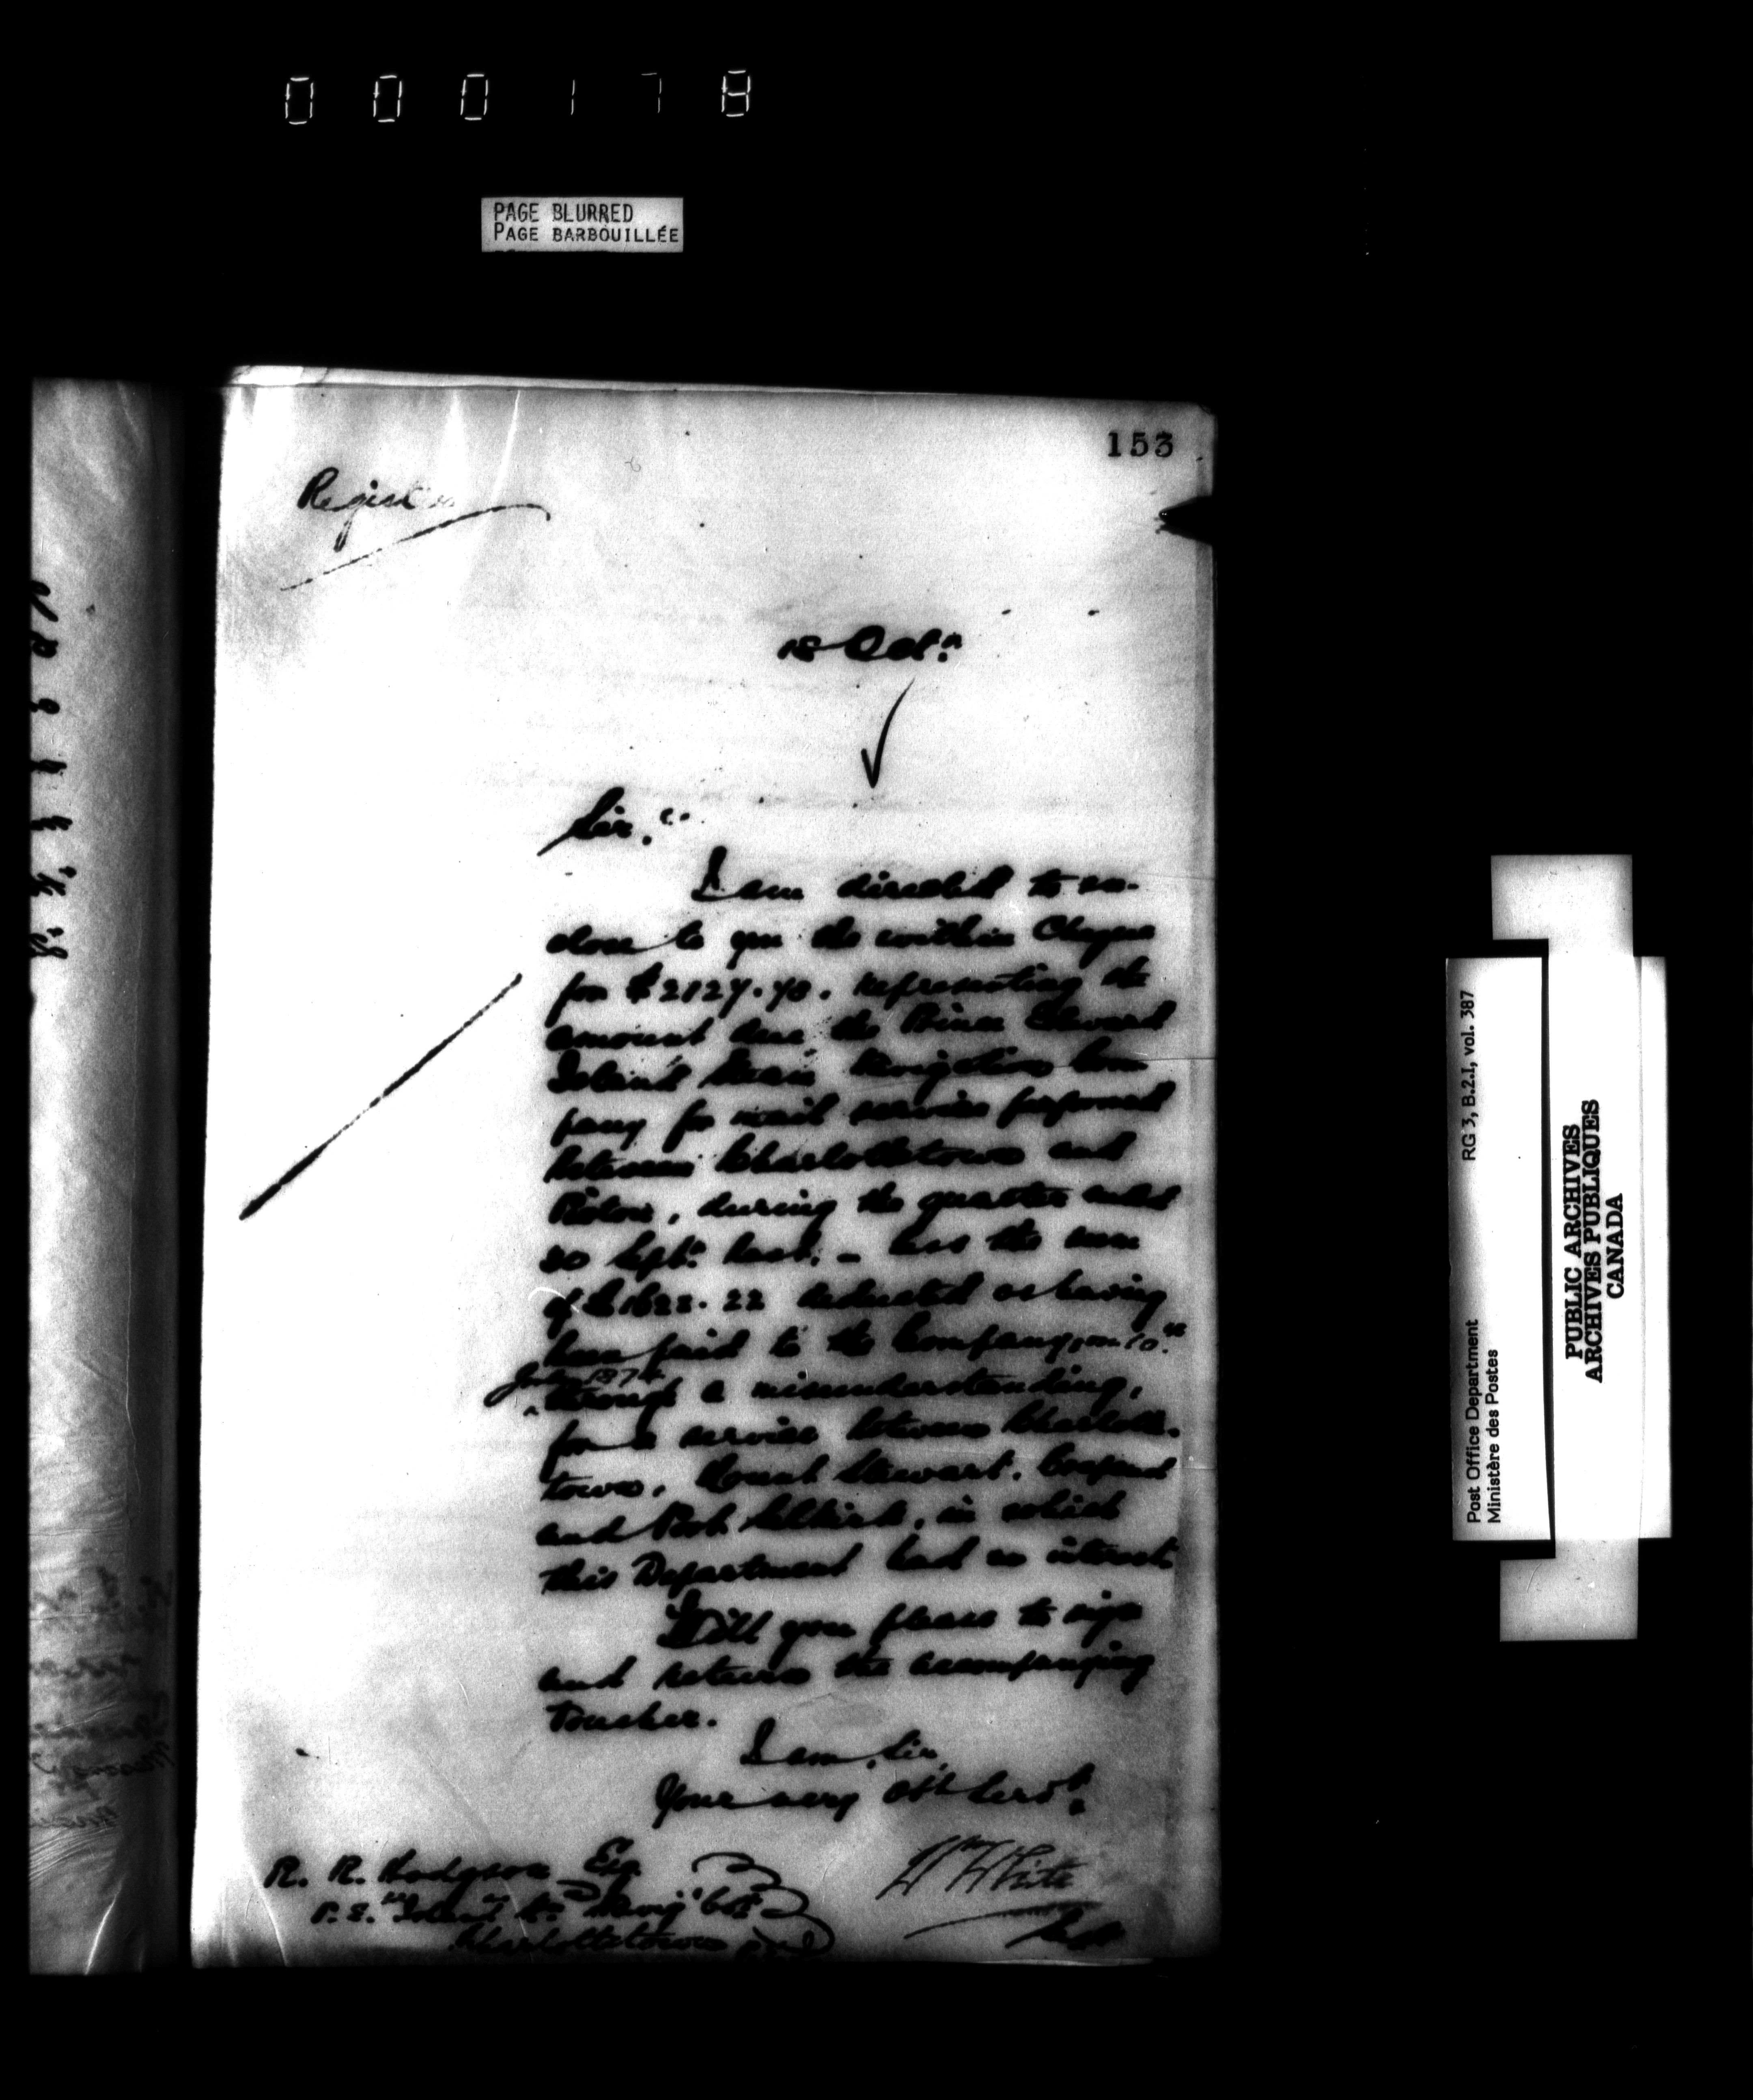 000178
PAGE BLURRED
PAGE BARBOUILLÉE
153
18 Octr.
Sir,
I am directed to en-
close to you the within Cheque
for $2127.78. representing the
amount due the Prince Edward
Island Steam Navigation Com
pany for mail service performed
between Charlottetown and
Pictou, during the quarter ended
30 Septr. last. - less the sum
of $1622.22 deducted as having
been paid to the Company, on 10th
July 1874
through a misunderstanding,
for a service between Charlotte-
town, Mount Stewart,
and Port, in which
this Department had no interest.
Will you please to sign
and return the accompanying
Voucher.
I am, Sir,
Your very obt Servt.
W White
Secy
R. R. Hodgson Esq
P. E. Island St. Navig Co
Charlottetown P E I
Post Office Department
Ministère des Postes
RG 3, B.2.1, vol. 387
PUBLIC ARCHIVES
ARCHIVES PUBLIQUES
CANADA